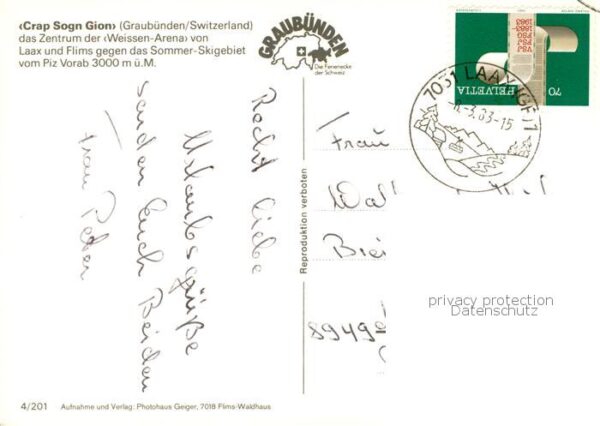 ‹Crap Sogn Gion› (Graubünden/Switzerland)
das Zentrum der ‹Weissen-Arena› von
Laax und Flims gegen das Sommer-Skigebiet
vom Piz Vorab 3000 m ü.M.
GRAUBÜNDEN
Die Ferienecke
der Schweiz
HELVETIA
70
7031 LAAX (GR) 1
-3.83-15
Recht liebe
Urlaubsgrüße
senden Euch Beiden
Frau Peter
Reproduktion verboten
Frau
Wal
Brei
8949
privacy protection
Datenschutz
4/201 Aufnahme und Verlag: Photohaus Geiger, 7018 Flims-Waldhaus